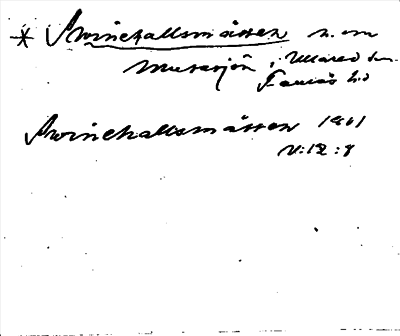 * Svinehallsmåssen n. om
Musasjön, i Ullared sn.
Faurås hd
Svinehallsmåssen 1961
V:12:8